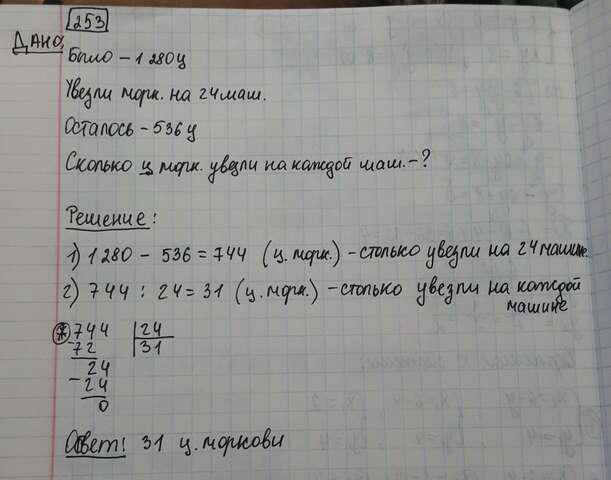 253
ДАНО:
Было - 1 280 ц
Увезли морк. на 24 маш.
Осталось - 536 ц
Сколько ц морк. увезли на каждой маш. - ?
Решение:
1) 1 280 - 536 = 744 (ц. морк.) - столько увезли на 24 машине.
2) 744 : 24 = 31 (ц. морк.) - столько увезли на каждой
машине
* 744 24
- 72 31
24
- 24
0
Ответ: 31 ц. моркови